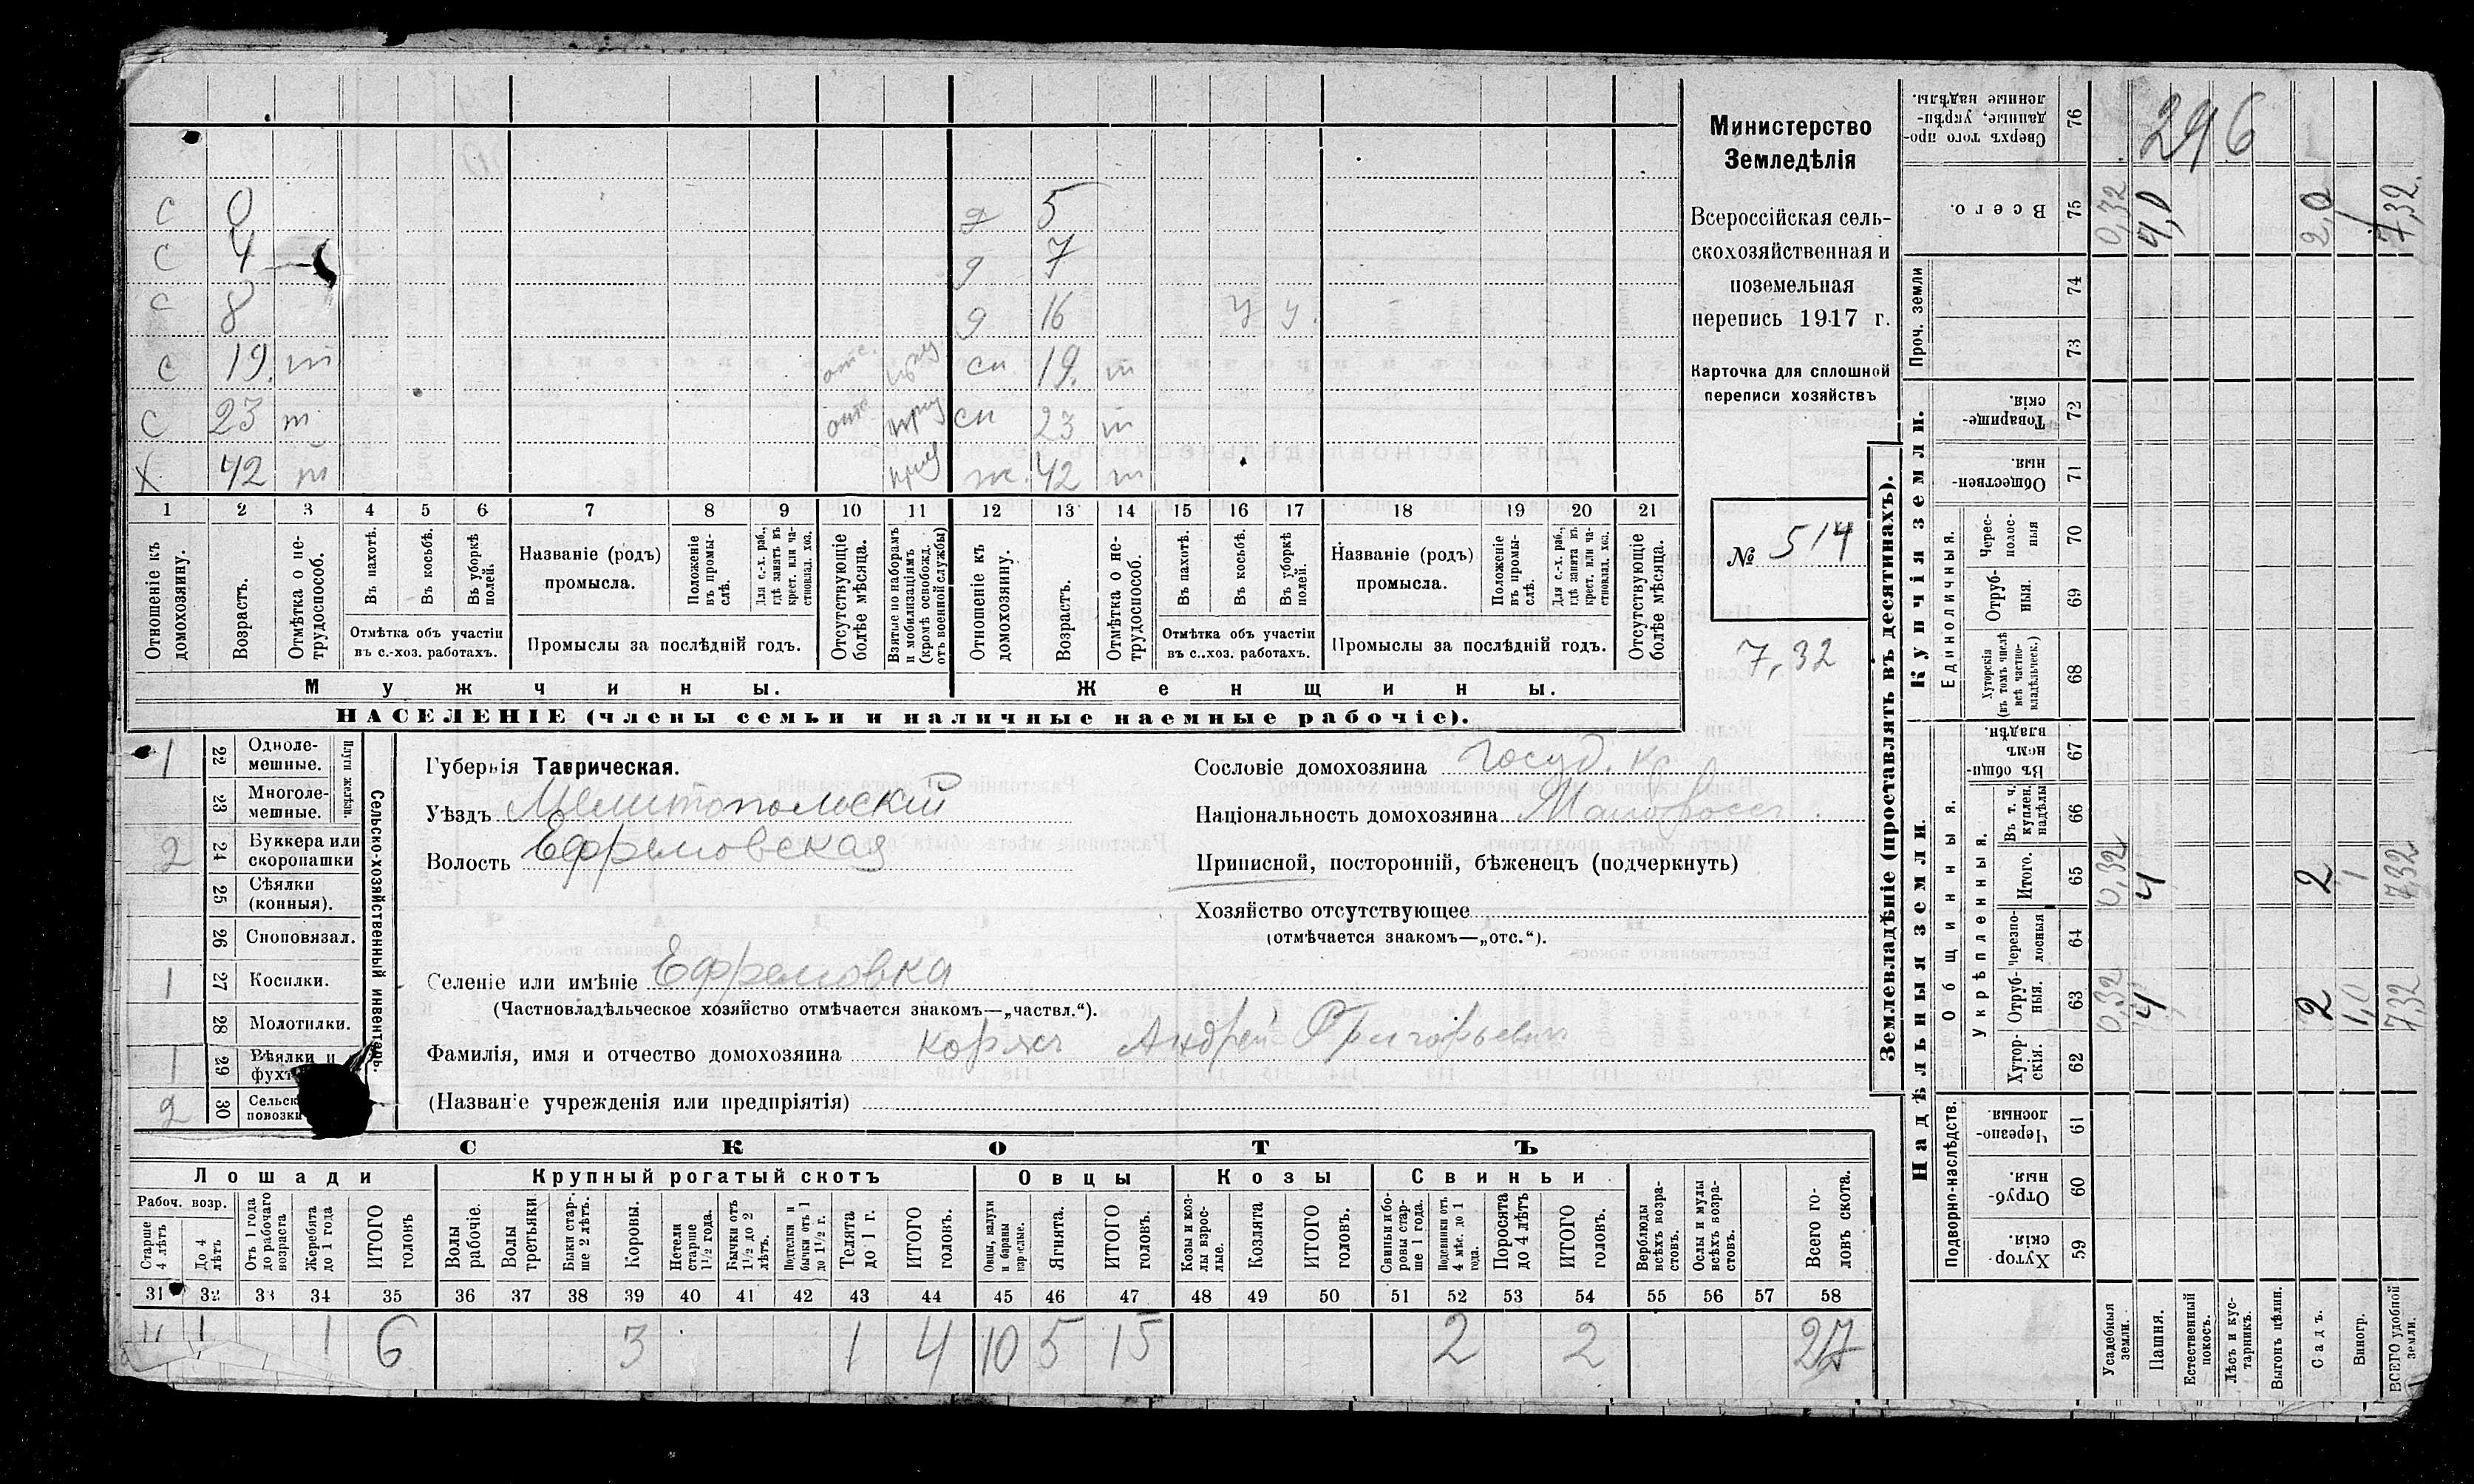 Министерство
Земледѣлія
Всероссійская сель-
скохозяйственная и
поземельная
перепись 1917 г.
Карточка для сплошной
переписи хозяйствъ
№ 514
7,32
с 0 д 5
с 4 д 7
с 8 д 16 у у
с 19 т отс. сн 19. т
с 23 т отс. сн 23 т
х 42 т ж. 42 т
1 2 3 4 5 6 7 8 9 10 11 12 13 14 15 16 17 18 19 20 21
Отношеніе къ домохозяину.
Возрастъ.
Отмѣтка о не-трудоспособ.
Въ пахотѣ.
Въ косьбѣ.
Въ уборкѣ полей.
Отмѣтка объ участіи
въ с.-хоз. работахъ.
Названіе (родъ)
промысла.
Положеніе въ промы-слѣ.
Для с.-х. раб., гдѣ занятъ въ крест. или ча-стновлад. хоз.
Промыслы за послѣдній годъ.
Отсутствующіе болѣе мѣсяца.
Взятые по наборамъ и мобилизаціямъ (кромѣ освобожд. отъ военной службы)
Отношеніе къ домохозяину.
Возрастъ.
Отмѣтка о не-трудоспособ.
Въ пахотѣ.
Въ косьбѣ.
Въ уборкѣ полей.
Отмѣтка объ участіи
въ с..хоз. работахъ.
Названіе (родъ)
промысла.
Положеніе въ промы-слѣ.
Для с.-х. раб., гдѣ занята въ крест. или ча-стновлад. хоз.
Промыслы за послѣдній годъ.
Отсутствующіе болѣе мѣсяца.
Мужчины.
Женщины.
НАСЕЛЕНІЕ (члены семьи и наличные наемные рабочіе).
Сельско-хозяйственный инвентарь.
Плуги желѣзн.
1 22 Одноле-мешные.
23 Многоле-мешные.
2 24 Буккера или скоропашки
25 Сѣялки (конныя).
26 Сноповязал.
1 27 Косилки.
28 Молотилки.
1 29 Вѣялки и
2 30 повозки
Губернія Таврическая.
Уѣздъ Мелитопольскій
Волость Ефремовская
Сословіе домохозяина госуд. кр
Національность домохозяина Малоросс
Приписной, посторонній, бѣженецъ (подчеркнуть)
Хозяйство отсутствующее
(отмѣчается знакомъ—„отс.“).
Селеніе или имѣніе Ефремовка
(Частновладѣльческое хозяйство отмѣчается знакомъ—„частвл.“).
Фамилія, имя и отчество домохозяина Андрей Григорьевич
(Названіе учрежденія или предпріятія)
СКОТЪ
Лошади
Крупный рогатый скотъ
Овцы
Козы
Свиньи
Рабоч. возр.
Старше 4 лѣтъ
До 4 лѣтъ
Отъ 1 года до рабочаго возраста
Жеребята до 1 года
ИТОГО головъ
Волы рабочіе.
Волы третьяки
Быки стар-ше 2 лѣтъ.
Коровы.
Нетели старше 1 1/2 года.
Бычки отъ 1 1/2 до 2 лѣтъ.
Подтелки и бычки отъ 1 до 1 1/2 г.
Телята до 1 г.
ИТОГО головъ.
Овцы, валухи и бараны взрослые.
Ягнята.
ИТОГО головъ.
Козы и коз-лы взрос-лые.
Козлята
ИТОГО головъ.
Свиньи и бо-ровы стар-ше 1 года.
Подсвинки отъ 4 мѣс. до 1 года.
Поросята до 4 лѣтъ
ИТОГО головъ.
Верблюды всѣхъ возра-стовъ.
Ослы и мулы всѣхъ возра-стовъ.
Всего го-ловъ скота.
31 32 33 34 35 36 37 38 39 40 41 42 43 44 45 46 47 48 49 50 51 52 53 54 55 56 57 58
4 1 1 6 3 1 4 10 5 15 2 2 27
Землевладѣніе (проставлять въ десятинахъ).
Надѣльныя земли.
Купчія земли.
Проч. земли
Сверхъ того про-данные, укрѣп-ленные надѣлы. 76 296
Всего. 75 0,32 4,0 2,0 1 7,32.
74
73
Товарище-скія. 72
Обществен-ныя. 71
Единоличныя.
Черес-полос-ныя 70
Отруб-ныя. 69
Хуторскія (въ томъ числѣ всѣ частно-владѣльческ.) 68
Общинныя.
Въ общин-номъ владѣн. 67
Укрѣпленныя.
Въ т. ч. куплен. надѣлы 66
Итого. 65 0,32 4 2 1 7,32
Черезпо-лосныя 64
Отруб-ныя. 63 0,32 4 2 1,0 7,32
Хутор-скія. 62
Подворно-наслѣдств.
Черезпо-лосныя 61
Отруб-ныя. 60
Хутор-скія. 59
Усадебныя земли.
Пашня.
Естественный покосъ.
Лѣсъ и кус-тарникъ.
Выгонъ цѣлин.
Садъ.
Виногр.
ВСЕГО удобной земли.